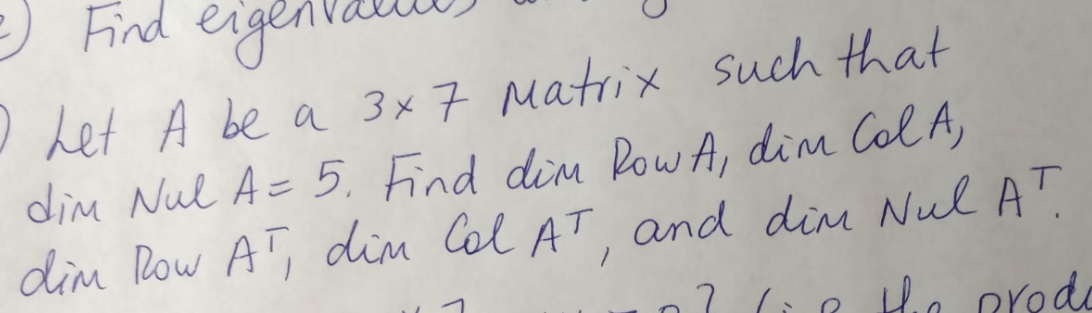 ) Find eigenvalues
) Let A be a 3×7 Matrix such that
dim Nul A = 5. Find dim Row A, dim Col A,
dim Row Aᵀ, dim Col Aᵀ, and dim Nul Aᵀ.
the produ